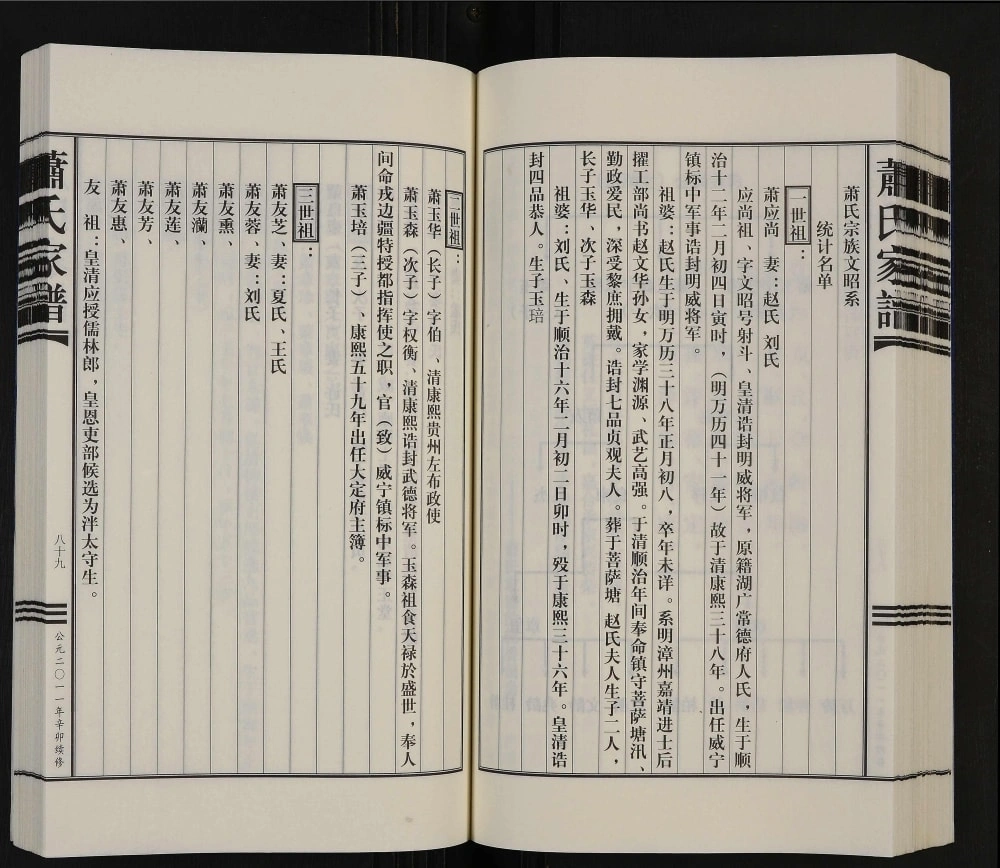 萧氏宗族文昭系
统计名单
一世祖：
萧应尚　妻：赵氏 刘氏
应尚祖、字文昭号射斗、皇清诰封明威将军，原籍湖广常德府人氏，生于顺
治十二年二月初四日寅时，（明万历四十一年）故于清康熙三十八年。出任威宁
镇标中军事诰封明威将军。
祖婆：赵氏生于明万历三十八年正月初八，卒年未详。系明漳州嘉靖进士后
擢工部尚书赵文华孙女，家学渊源、武艺高强。于清顺治年间奉命镇守菩萨塘汛、
勤政爱民，深受黎庶拥戴。诰封七品贞观夫人。葬于菩萨塘 赵氏夫人生子二人，
长子玉华、次子玉森
祖婆：刘氏、生于顺治十六年二月初二日卯时，殁于康熙三十六年。皇清诰
封四品恭人。生子玉琣
萧氏家谱
二世祖：
萧玉华（长子）字伯 、清康熙贵州左布政使
萧玉森（次子）字权衡、清康熙诰封武德将军。玉森祖食天禄於盛世，奉人
问命戍边疆特授都指挥使之职，官（致）威宁镇标中军事。
萧玉培（三子）、康熙五十九年出任大定府主簿。
三世祖：
萧友芝、妻：夏氏、王氏
萧友蓉、妻：刘氏
萧友熏、
萧友灡、
萧友莲、
萧友芳、
萧友惠、
友　祖：皇清应授儒林郎，皇恩吏部候选为泮太守生。
蕭氏家譜
八十九
公元二〇一一年辛卯续修